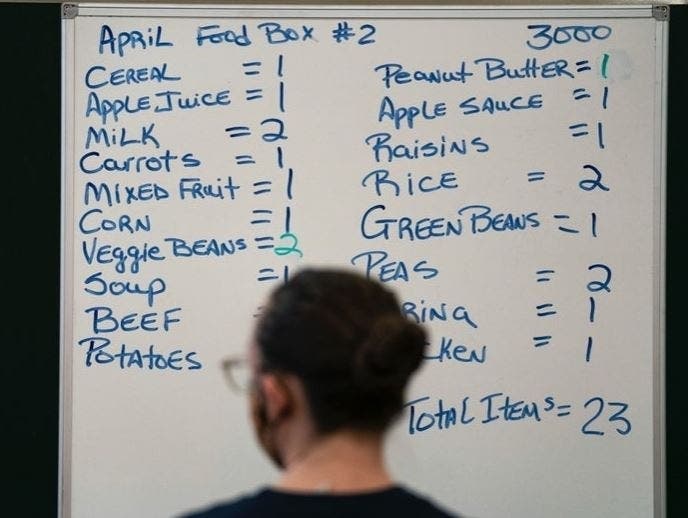 APRIL Food Box #2
CEREAL = 1
APPLE JUICE = 1
MiLK = 2
Carrots = 1
MIXED FRuit = 1
CORN = 1
Veggie BEANS = 2
Soup = 1
BEEF
POTATOES
3000
PEANut ButtER = 1
APPLE SAUCE = 1
Raisins = 1
RiCE = 2
GREEN BEANS = 1
PEAS = 2
= 1
= 1
TOTAL ITEMS = 23